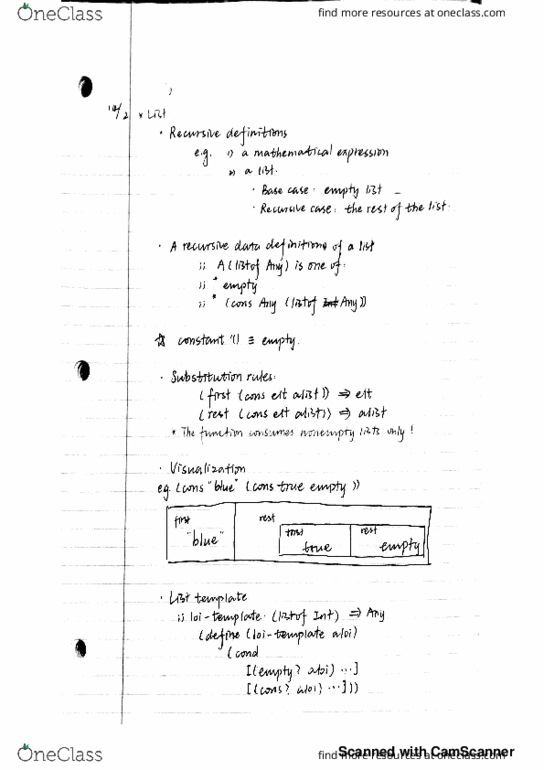 OneClass
find more resources at oneclass.com
10/2 * List
· Recursive definitions
e.g. 1) a mathematical expression
2) a list.
· Base case: empty list
· Recursive case: the rest of the list.
· A recursive data definitions of a list
;; A (listof Any) is one of:
;; * empty
;; * (cons Any (listof Int Any))
☆ constant '() ≡ empty.
· Substitution rules:
(first (cons elt alist)) ⇒ elt
(rest (cons elt alist)) ⇒ alist
* The function consumes nonempty lists only!
· Visualization
eg (cons "blue" (cons true empty))
first rest
first rest
"blue" true empty
· List template
;; loi-template: (listof Int) ⇒ Any
(define (loi-template aloi)
(cond
[(empty? aloi) ...]
[(cons? aloi) ...]))
OneClass
find more resources at oneclass.com
Scanned with CamScanner